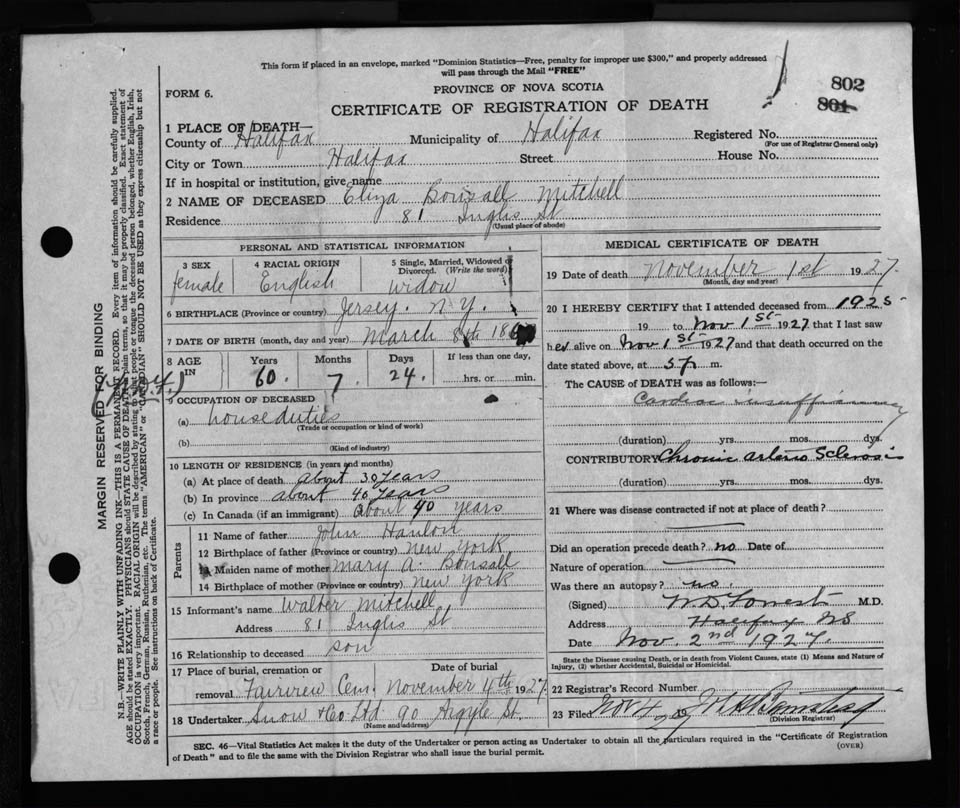 This form if placed in an envelope, marked "Dominion Statistics—Free, penalty for improper use $300," and properly addressed
will pass through the Mail "FREE"
FORM 6.
PROVINCE OF NOVA SCOTIA
802
801
CERTIFICATE OF REGISTRATION OF DEATH
1 PLACE OF DEATH—
County of Halifax Municipality of Halifax Registered No.
(For use of Registrar General only)
City or Town Halifax Street House No.
If in hospital or institution, give name
2 NAME OF DECEASED Eliza Bonsall Mitchell
Residence 81 Inglis St
(Usual place of abode)
PERSONAL AND STATISTICAL INFORMATION
3 SEX female
4 RACIAL ORIGIN English
5 Single, Married, Widowed or Divorced. (Write the word) widow
6 BIRTHPLACE (Province or country) Jersey. N.Y.
7 DATE OF BIRTH (month, day and year) March 8th 186
8 AGE IN Years 60. Months 7 Days 24. If less than one day, hrs. or min.
9 OCCUPATION OF DECEASED
(a) house duties
(Trade or occupation or kind of work)
(b)
(Kind of industry)
10 LENGTH OF RESIDENCE (in years and months)
(a) At place of death about 30 years
(b) In province about 40 years
(c) In Canada (if an immigrant) about 40 years
Parents
11 Name of father John Hanlon
12 Birthplace of father (Province or country) New York
13 Maiden name of mother Mary A. Bonsall
14 Birthplace of mother (Province or country) New York
15 Informant's name Walter Mitchell
Address 81 Inglis St
16 Relationship to deceased son
17 Place of burial, cremation or removal Fairview Cem. Date of burial November 4th 1927
18 Undertaker Snow & Co Ltd 90 Argyle St.
(Name and address)
MEDICAL CERTIFICATE OF DEATH
19 Date of death November 1st 1927
(Month, day and year)
20 I HEREBY CERTIFY that I attended deceased from 1925
19 to Nov 1st 1927 that I last saw
her alive on Nov 1st 1927 and that death occurred on the
date stated above, at m.
The CAUSE of DEATH was as follows:—
Cardiac insufficiency
(duration) yrs. mos. dys.
CONTRIBUTORY Chronic arterio Sclerosis
(duration) yrs. mos. dys.
21 Where was disease contracted if not at place of death?
Did an operation precede death? no Date of
Nature of operation
Was there an autopsy? no.
(Signed) W.D. Forrest M.D.
Address Halifax NS
Date Nov. 2nd 1927.
State the Disease causing Death, or in death from Violent Causes, state (1) Means and Nature of
Injury, (2) whether Accidental, Suicidal or Homicidal.
22 Registrar's Record Number
23 Filed Nov 4 1927
(Division Registrar)
SEC. 46—Vital Statistics Act makes it the duty of the Undertaker or person acting as Undertaker to obtain all the particulars required in the "Certificate of Registration
of Death" and to file the same with the Division Registrar who shall issue the burial permit.
(OVER)
MARGIN RESERVED FOR BINDING
N.B.—WRITE PLAINLY WITH UNFADING INK—THIS IS A PERMANENT RECORD. Every item of information should be carefully supplied.
AGE should be stated EXACTLY. PHYSICIANS should STATE CAUSE OF DEATH in plain terms, so that it may be properly classified. Exact statement of
OCCUPATION is very important. RACIAL ORIGIN will be described by stating to what people or tongue the deceased person belonged, whether English, Irish,
Scotch, French, German, Russian, Ruthenian, etc. The terms "AMERICAN" or "CANADIAN" SHOULD NOT BE USED as they express citizenship but not
a race or people. See instructions on back of Certificate.